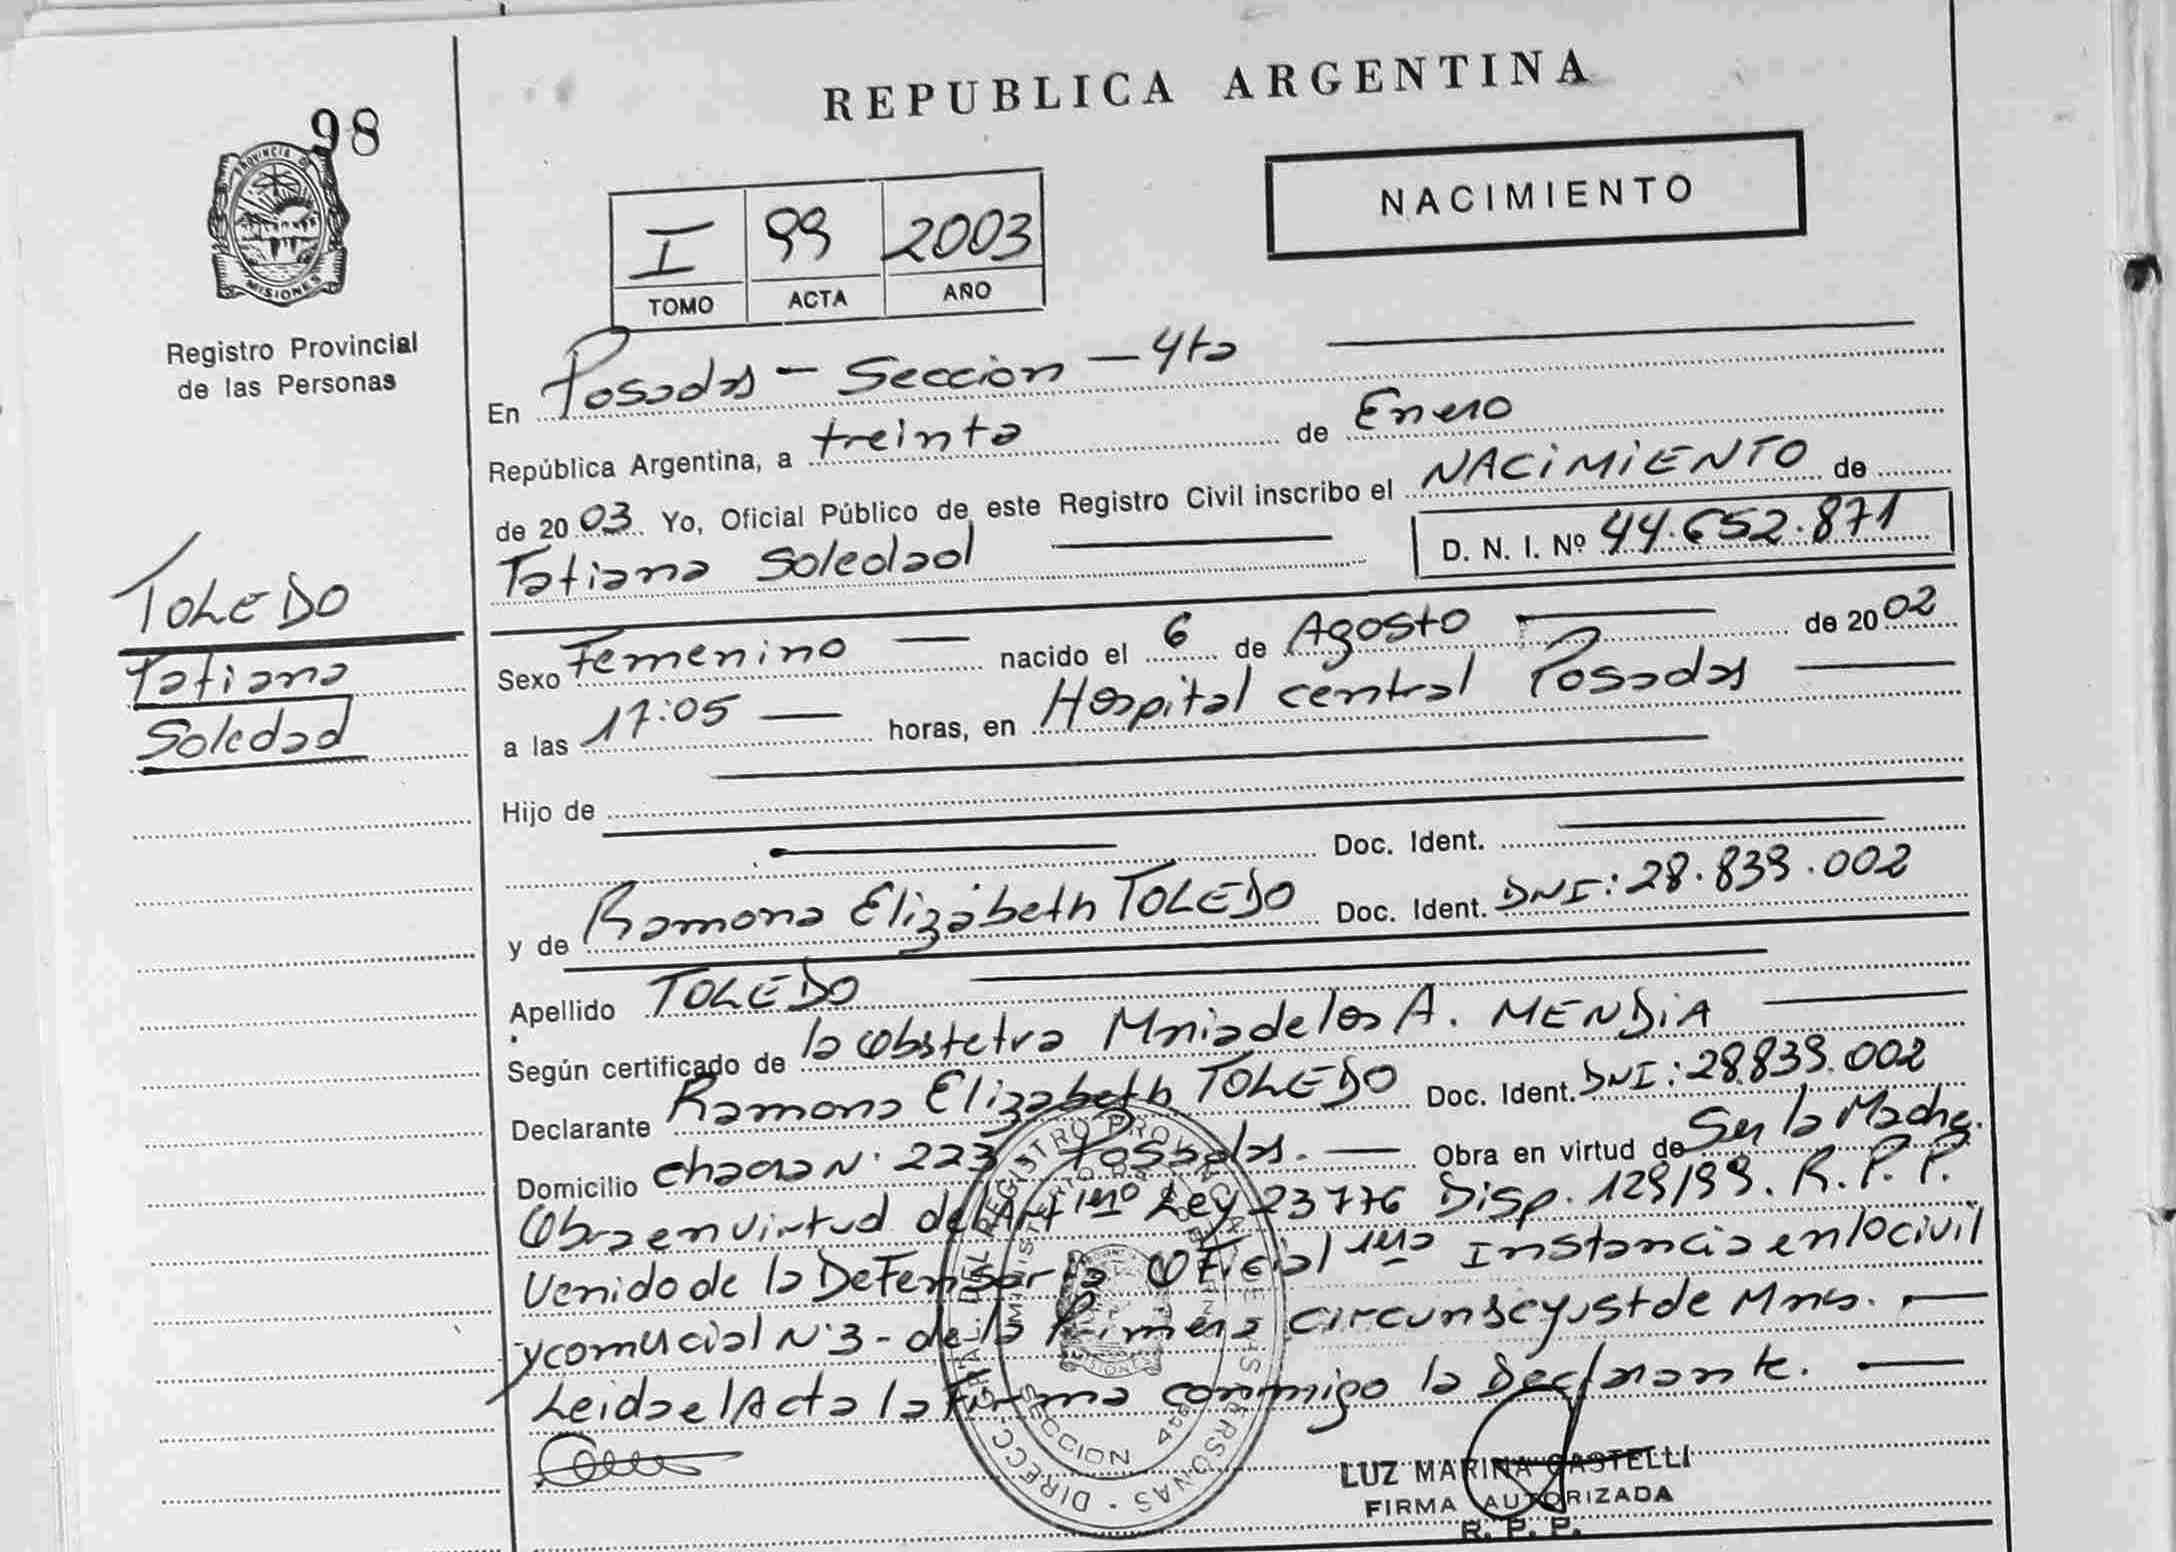 REPUBLICA ARGENTINA
98
PROVINCIA DE
MISIONES
Registro Provincial
de las Personas
NACIMIENTO
I 99 2003
TOMO ACTA AÑO
En Posadas - Seccion - 4ta
República Argentina, a treinta de Enero
de 2003. Yo, Oficial Público de este Registro Civil inscribo el NACIMIENTO de
Tatiana Soledad D. N. I. Nº 44.652.871
TOLEDO
Tatiana
Soledad
Sexo Femenino nacido el 6 de Agosto de 2002
a las 17:05 horas, en Hospital central Posadas
Hijo de
Doc. Ident.
y de Ramona Elizabeth TOLEDO Doc. Ident. DNI: 28.839.002
Apellido TOLEDO
Según certificado de la Obstetra Mria de los A. MENDIA
Declarante Ramona Elizabeth TOLEDO Doc. Ident. DNI: 28.839.002
Domicilio chacra N. 223 Posadas. Obra en virtud de Ser la Madre.
Obra en virtud del Art 11º Ley 23776 Disp. 129/99. R. P. P.
Venido de la Defensoria Oficial 1ra Instancia en lo civil
y comercial N. 3 - de la Primera circunsc y just de Mnes.
Leida el Acta la firma conmigo la Declarante.
DIRECC. GRAL. DEL REGISTRO PROVINCIAL DE LAS PERSONAS
SECCION 4ta
LUZ MARINA CASTELLI
FIRMA AUTORIZADA
R. P. P.